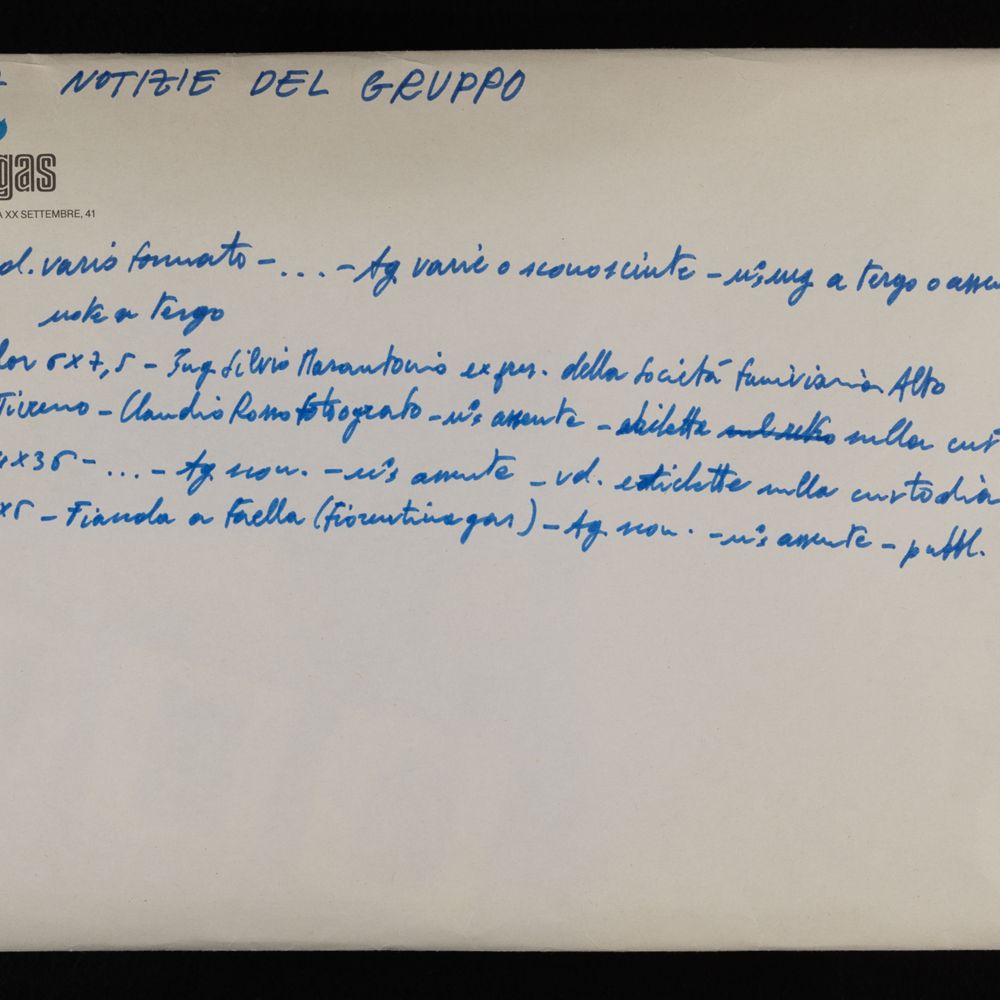 NOTIZIE DEL GRUPPO
gas
A XX SETTEMBRE, 41
d. vario formato - ... - Ag. varie o sconosciute - n.i a tergo o assen
note a tergo
lor 6x7,5 - Ing. Silvio Marantonio ex pres. della Società funiviaria Alto
Tirreno - Claudio Rosso fotografo - n.i assente - etichetta sulla cust
x36 - ... - Ag. scon. - n.i assente - vd. etichette sulla custodia
- Fiandola a Faella (Fiorentina gas) - Ag. scon. - n.i assente - pubbl.